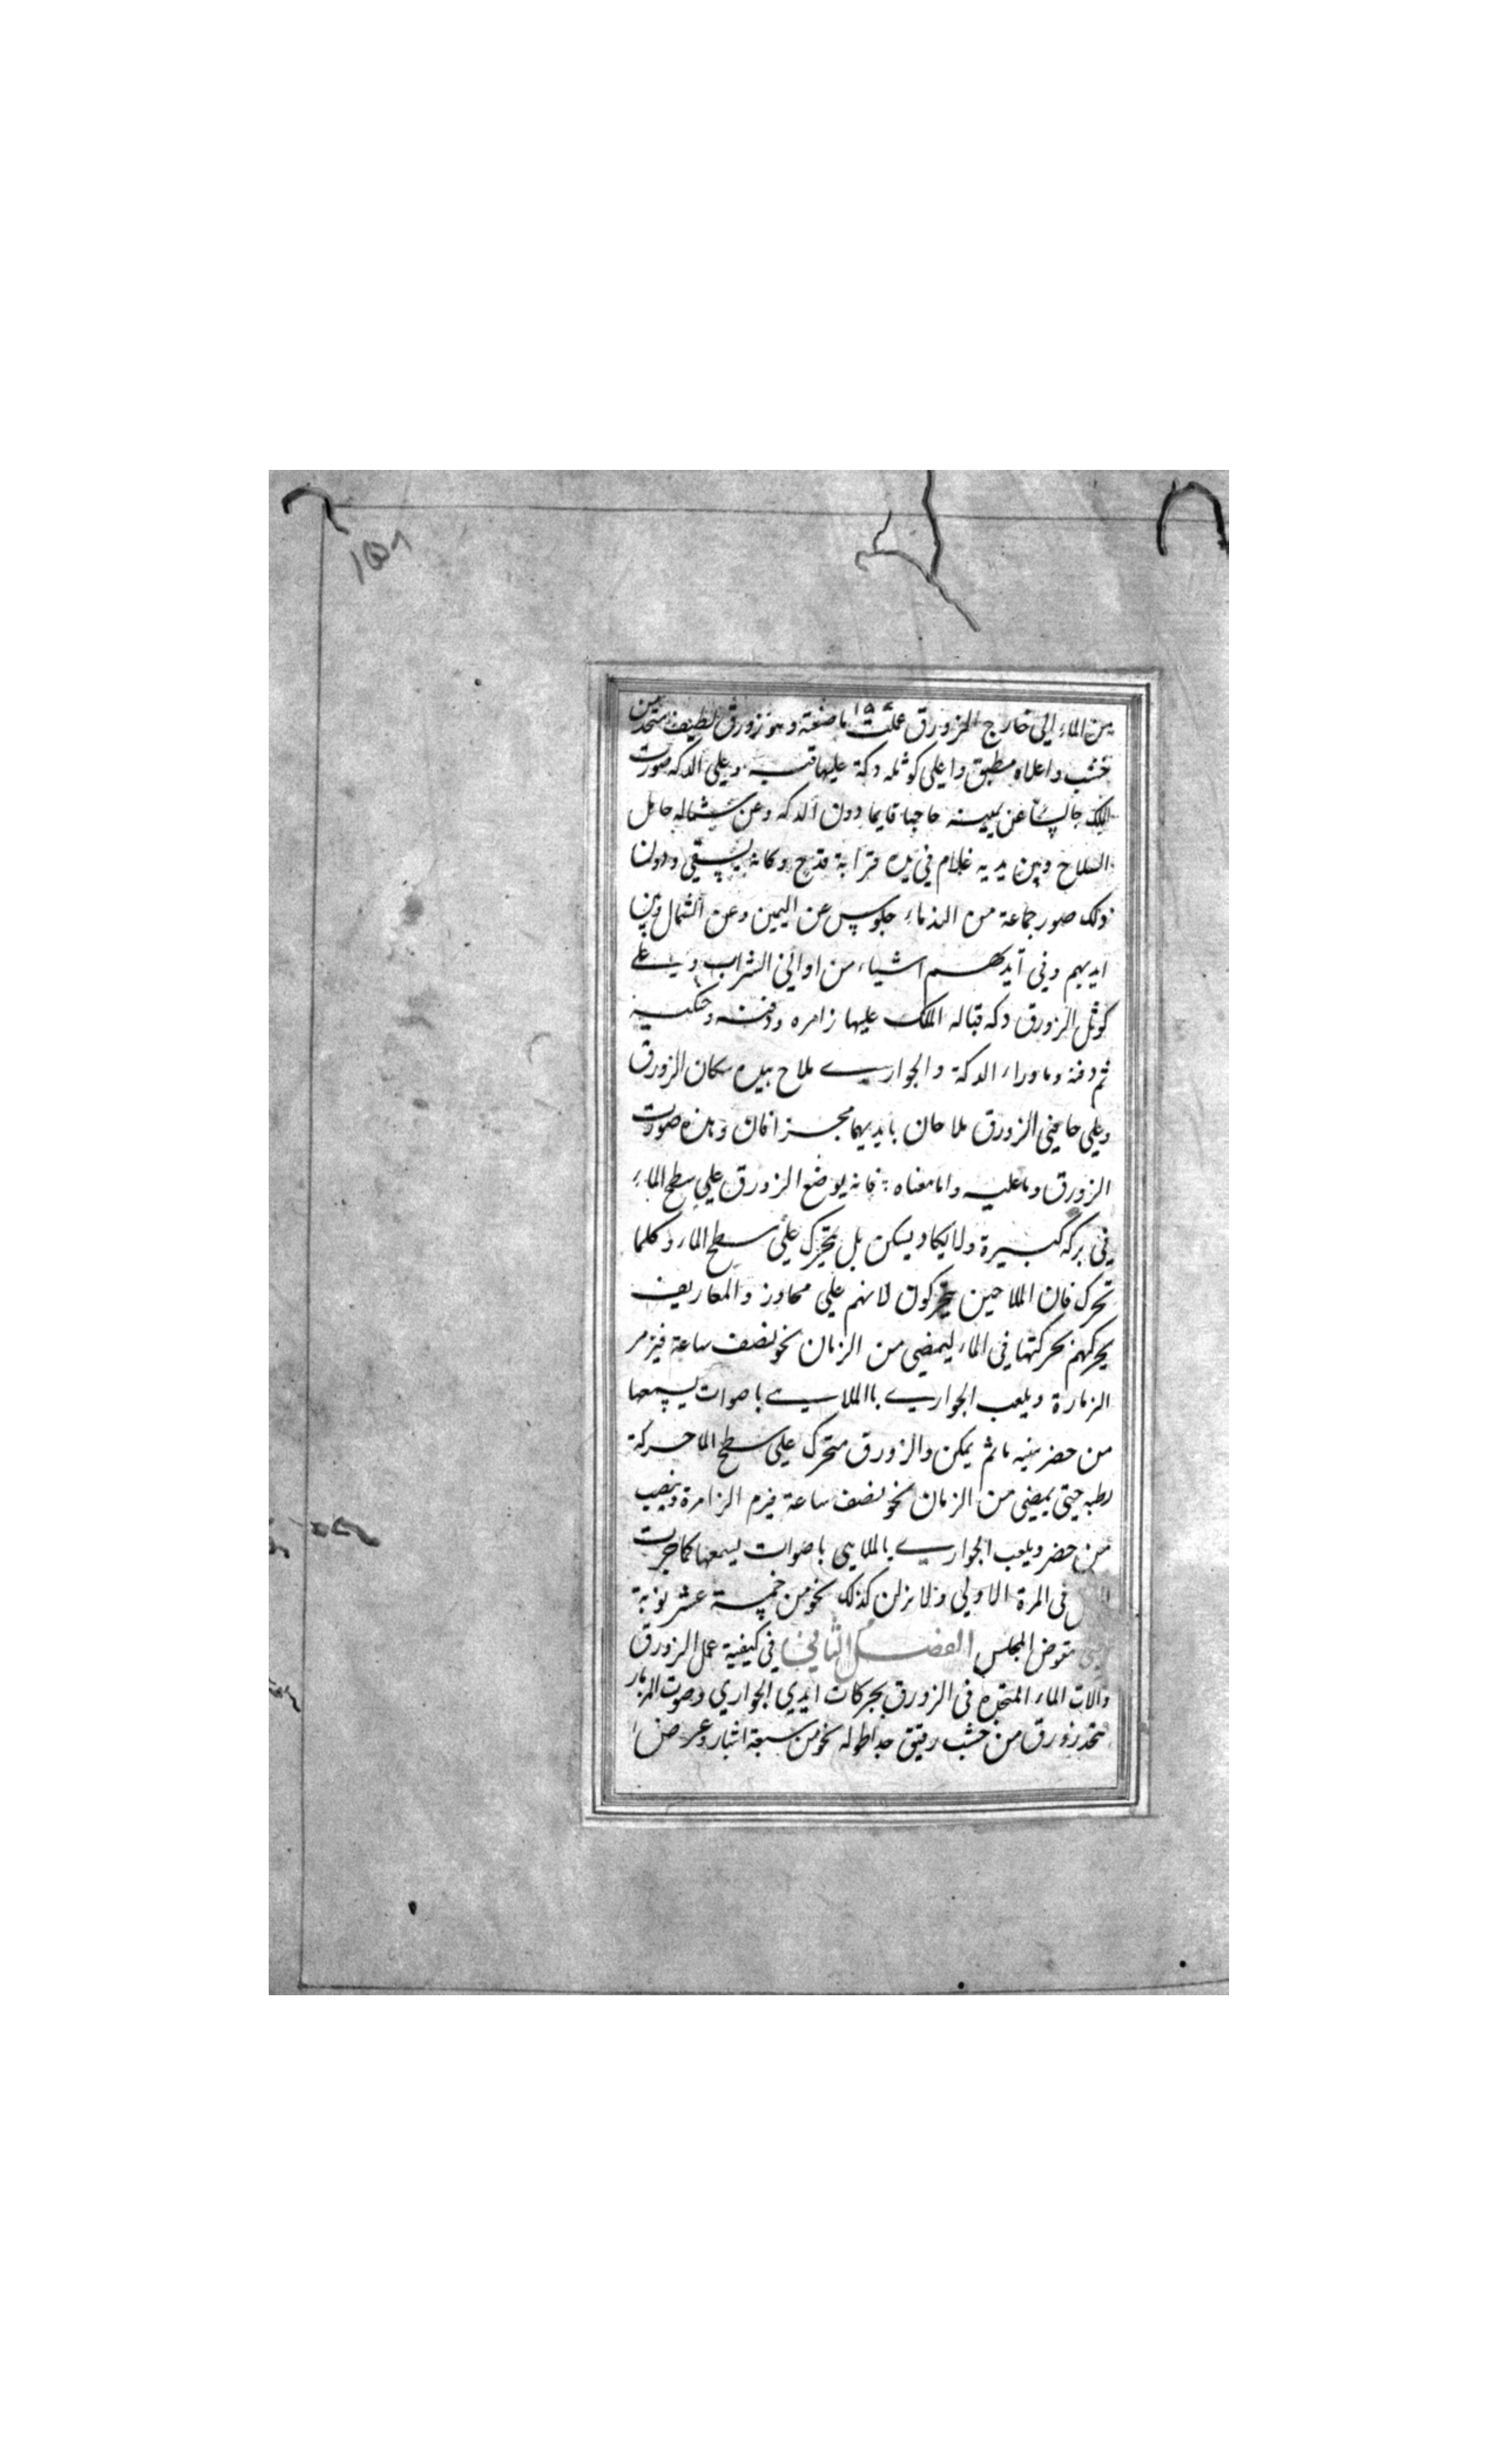 ١٥٨
١٥٤
من الماء إلى خارج الزورق عملت ما صنعته وهو زورق لطيف متخذ من
خشب واعلاه مطبق واعلى كوثله دكة عليها قبه وعلى الدكه صورت
الملك جالسًا عن يمينه حاجبا قايما دون الدكه وعن شماله حامل
السلاح وبين يديه غلام في يده قرابة قدح وكانه يسقي ودون
ذلك صور جماعة من الندماء جلوس عن اليمين وعن الشمال وبين
ايديهم وفي ايديهم اشياء من اواني الشراب و على
كوثل الزورق دكه قباله الملك عليها زامره ودفنه وجنكيه
ثم دفنه وما وراء الدكة والجواري ملاح بيده سكان الزورق
وعلى جانبي الزورق ملاحان بايديهما مجزافان وهذه صورت
الزورق وما عليه واما معناه : فانه يوضع الزورق علي سطح الماء
في بركه كبيرة ولا يكاد يسكن بل يتحرك على سطح الماء وكلما
تحرك فان الملاحين يتحركون لانهم علي محاور والمعاريف
يحركهم بحركتها في الماء ليمضي من الزمان نحو نصف ساعة فيزمر
الزمارة ويلعب الجواري باالملاهي باصوات يسمعها
من حضر منيه ما ثم يمكن والزورق متحرك على سطح الما حركة
رطبه حتى يمضى من الزمان نحو نصف ساعة فيزم الزامرة وينصب
من حضر ويلعب الجواري بالملاهي باصوات ليسمعها كما جرت
في المرة الاولى ولا يزلن كذلك نحو من خمسة عشر نوبة
يتقوض المجلس الفصل الثاني في كيفية عمل الزورق
والات الماء المتخذه في الزورق بحركات ايدي الجواري وصوت المزمار
يتخذ زورق من خشب رقيق جدا طوله نحو من سبعة اشبار وعرض ا